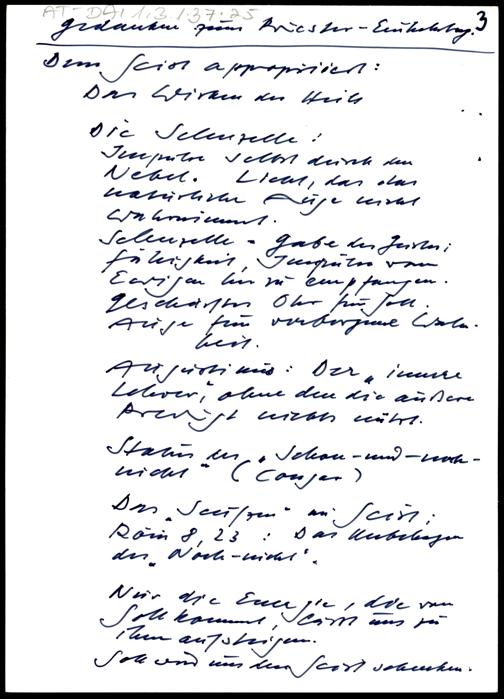 AT-DAI 1.3.1.37.25
3
Gedanken zum Priester-Einkehrtag.
Dem Geist appropriiert:
Das Wirken des Heils
Die Sehnzelle:
Impulse selbst durch den
Nebel. Licht, das das
natürliche Auge nicht
wahrnimmt.
Sehnzelle = Gabe des Geistes;
Fähigkeit, Impulse vom
Ewigen her zu empfangen.
Geschärftes Ohr für Gott.
Auge für verborgene Wahr-
heit.
Augustinus: Der "innere
Lehrer", ohne den die äußere
Predigt nichts nützt.
Status des "Schon-und-noch-
nicht" (Congar)
Das "Seufzen" im Geist;
Röm 8,23: Das Unbehagen
des "Noch-nicht".
Nur die Energie, die von
Gott kommt, lässt uns zu
ihm aufsteigen.
Gott wird uns den Geist schenken.